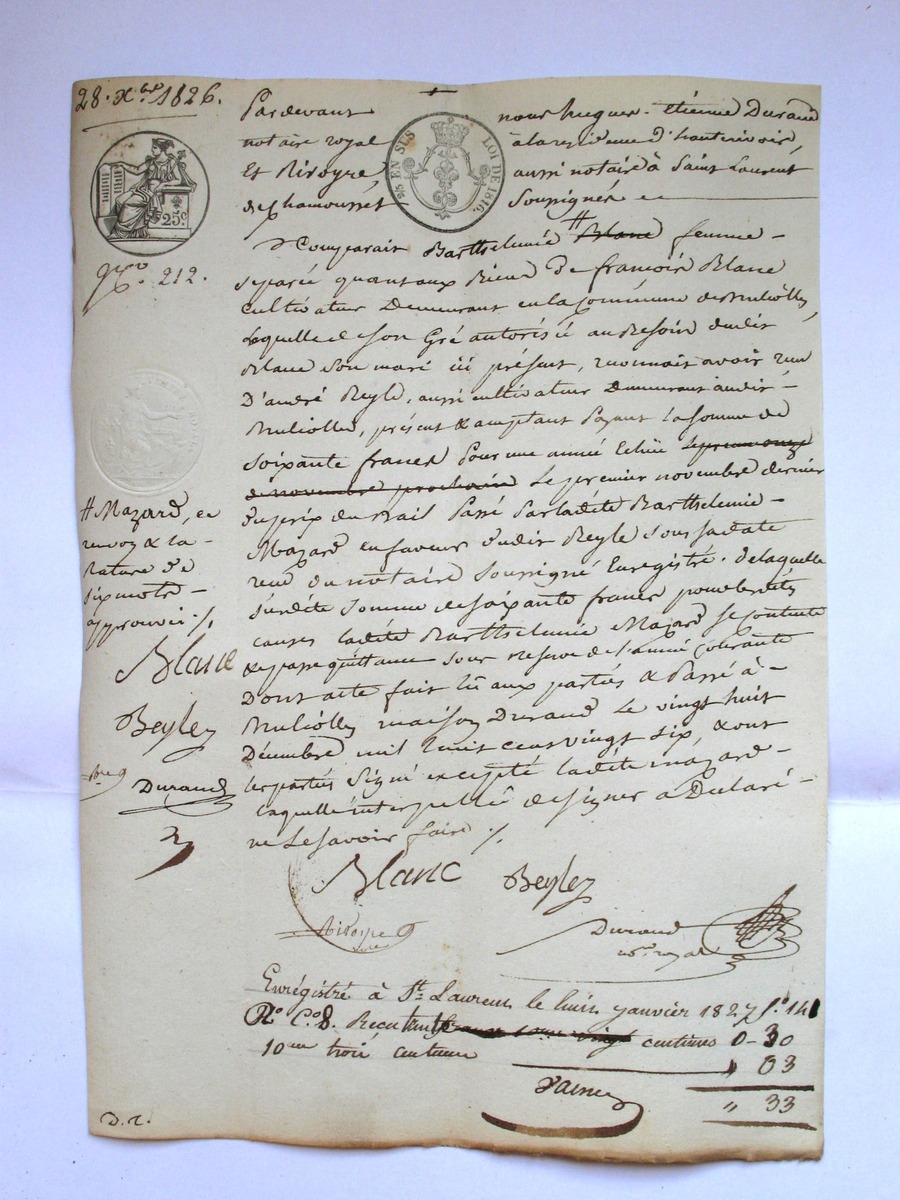 28. Xbre 1826.
Pardevant nous hugues-étienne Durand
notaire royal à la residence d'hauterivoire,
Et Risoyre aussi notaire à Saint Laurent
de Chamousset Soussignés
25 EN SUS LOI DE 1816.
25c.
No. 212.
Comparait Barthelemie # Blanc femme
separée quant aux Biens De francois Blanc
cultivateur Demeurant en la Commune de
Laquelle de son Gré autorisée au Besoin dudit
Blanc son mari ici présent, reconnait avoir reçu
D'andré Beyle, aussi cultivateur Demeurant audit
présent & acceptant Payant la somme de
soixante francs Pour une année Echue le premier
de novembre prochain Le premier novembre dernier
Du prix du Bail Passé Par ladite Barthelemie
Mazard en faveur dudit Beyle sous sa date
reçu du notaire Soussigné Enregistré. de laquelle
susdite somme de soixante francs pour lesdites
causes ladite Barthelemie Mazard se contente
& passe quittance sous reserve de l'année courante
Dont acte fait lû aux parties & Passé à
maison Durand Le vingt huit
Décembre mil huit cent vingt six, & ont
les parties Signé excepté ladite mazard
laquelle interpellée de signer a Déclaré
ne Le savoir faire ./.
# Mazard, ce
renvoy & la
rature de
six mots
approuvés ./.
Blanc
Beyle
Durand
Blanc Beyle
Risoyre Durand
nre. royal
Enrégistré à St. Laurent le huit janvier 1827 fo. 141
Ro. Co. 8. Recu trente centimes 0-30
10me trois centimes " 03
" 33
D.r.